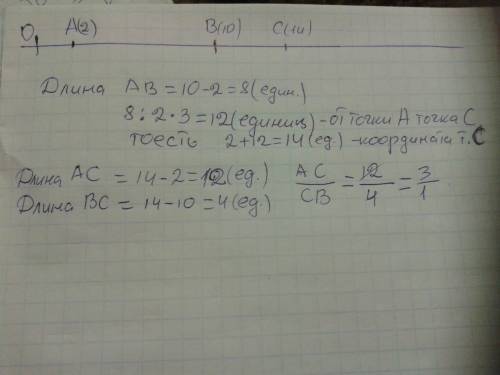 O A(2) B(10) C(14)
Длина AB = 10-2 = 8(един.)
8:2·3 = 12(единиц) - от точки А точка С,
тоесть 2+12 = 14(ед.) - координата т.С
Длина AC = 14-2 = 12(ед.) AC/CB = 12/4 = 3/1
Длина BC = 14-10 = 4(ед.)